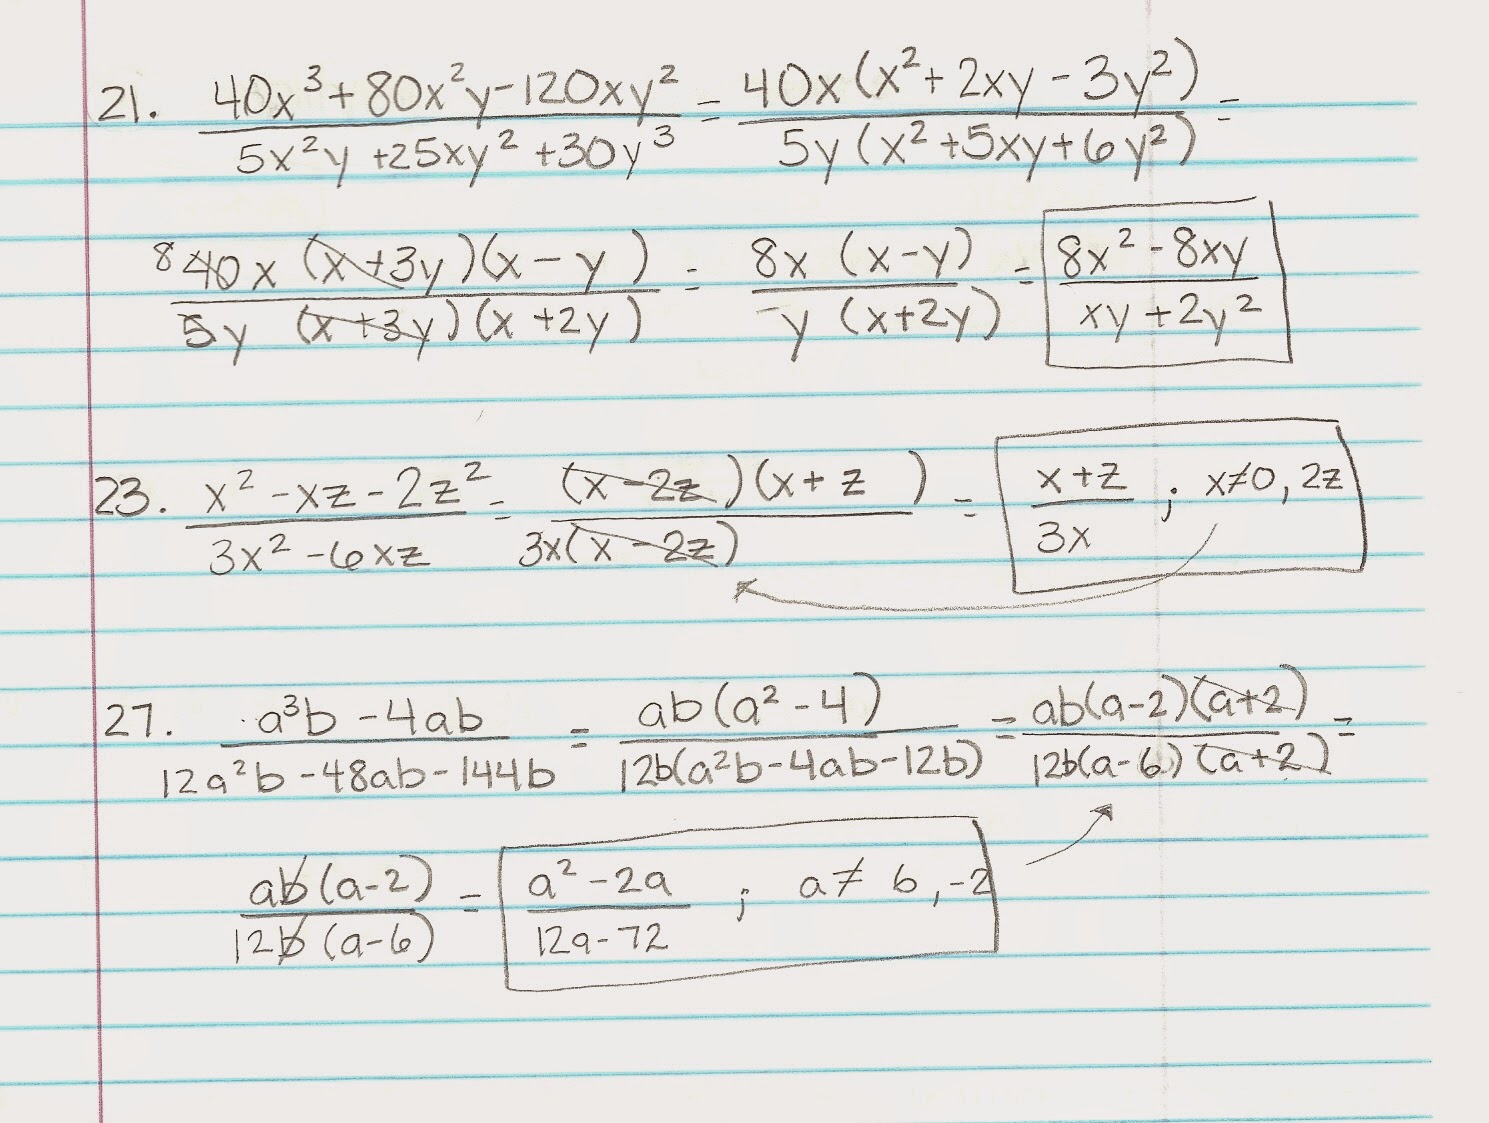 21. (40x³ + 80x²y - 120xy²)/(5x²y + 25xy² + 30y³) = 40x(x² + 2xy - 3y²)/(5y(x² + 5xy + 6y²)) =
8 40x (x+3y)(x - y)/(5y (x+3y)(x + 2y)) = 8x (x-y)/(y (x+2y)) = (8x² - 8xy)/(xy + 2y²)
23. (x² - xz - 2z²)/(3x² - 6xz) = (x - 2z)(x + z)/(3x(x - 2z)) = (x+z)/(3x) ; x≠0, 2z
27. (a³b - 4ab)/(12a²b - 48ab - 144b) = ab(a² - 4)/(12b(a²b - 4ab - 12b)) = ab(a-2)(a+2)/(12b(a-6)(a+2)) =
ab(a-2)/(12b(a-6)) = (a² - 2a)/(12a - 72) ; a≠ 6, -2